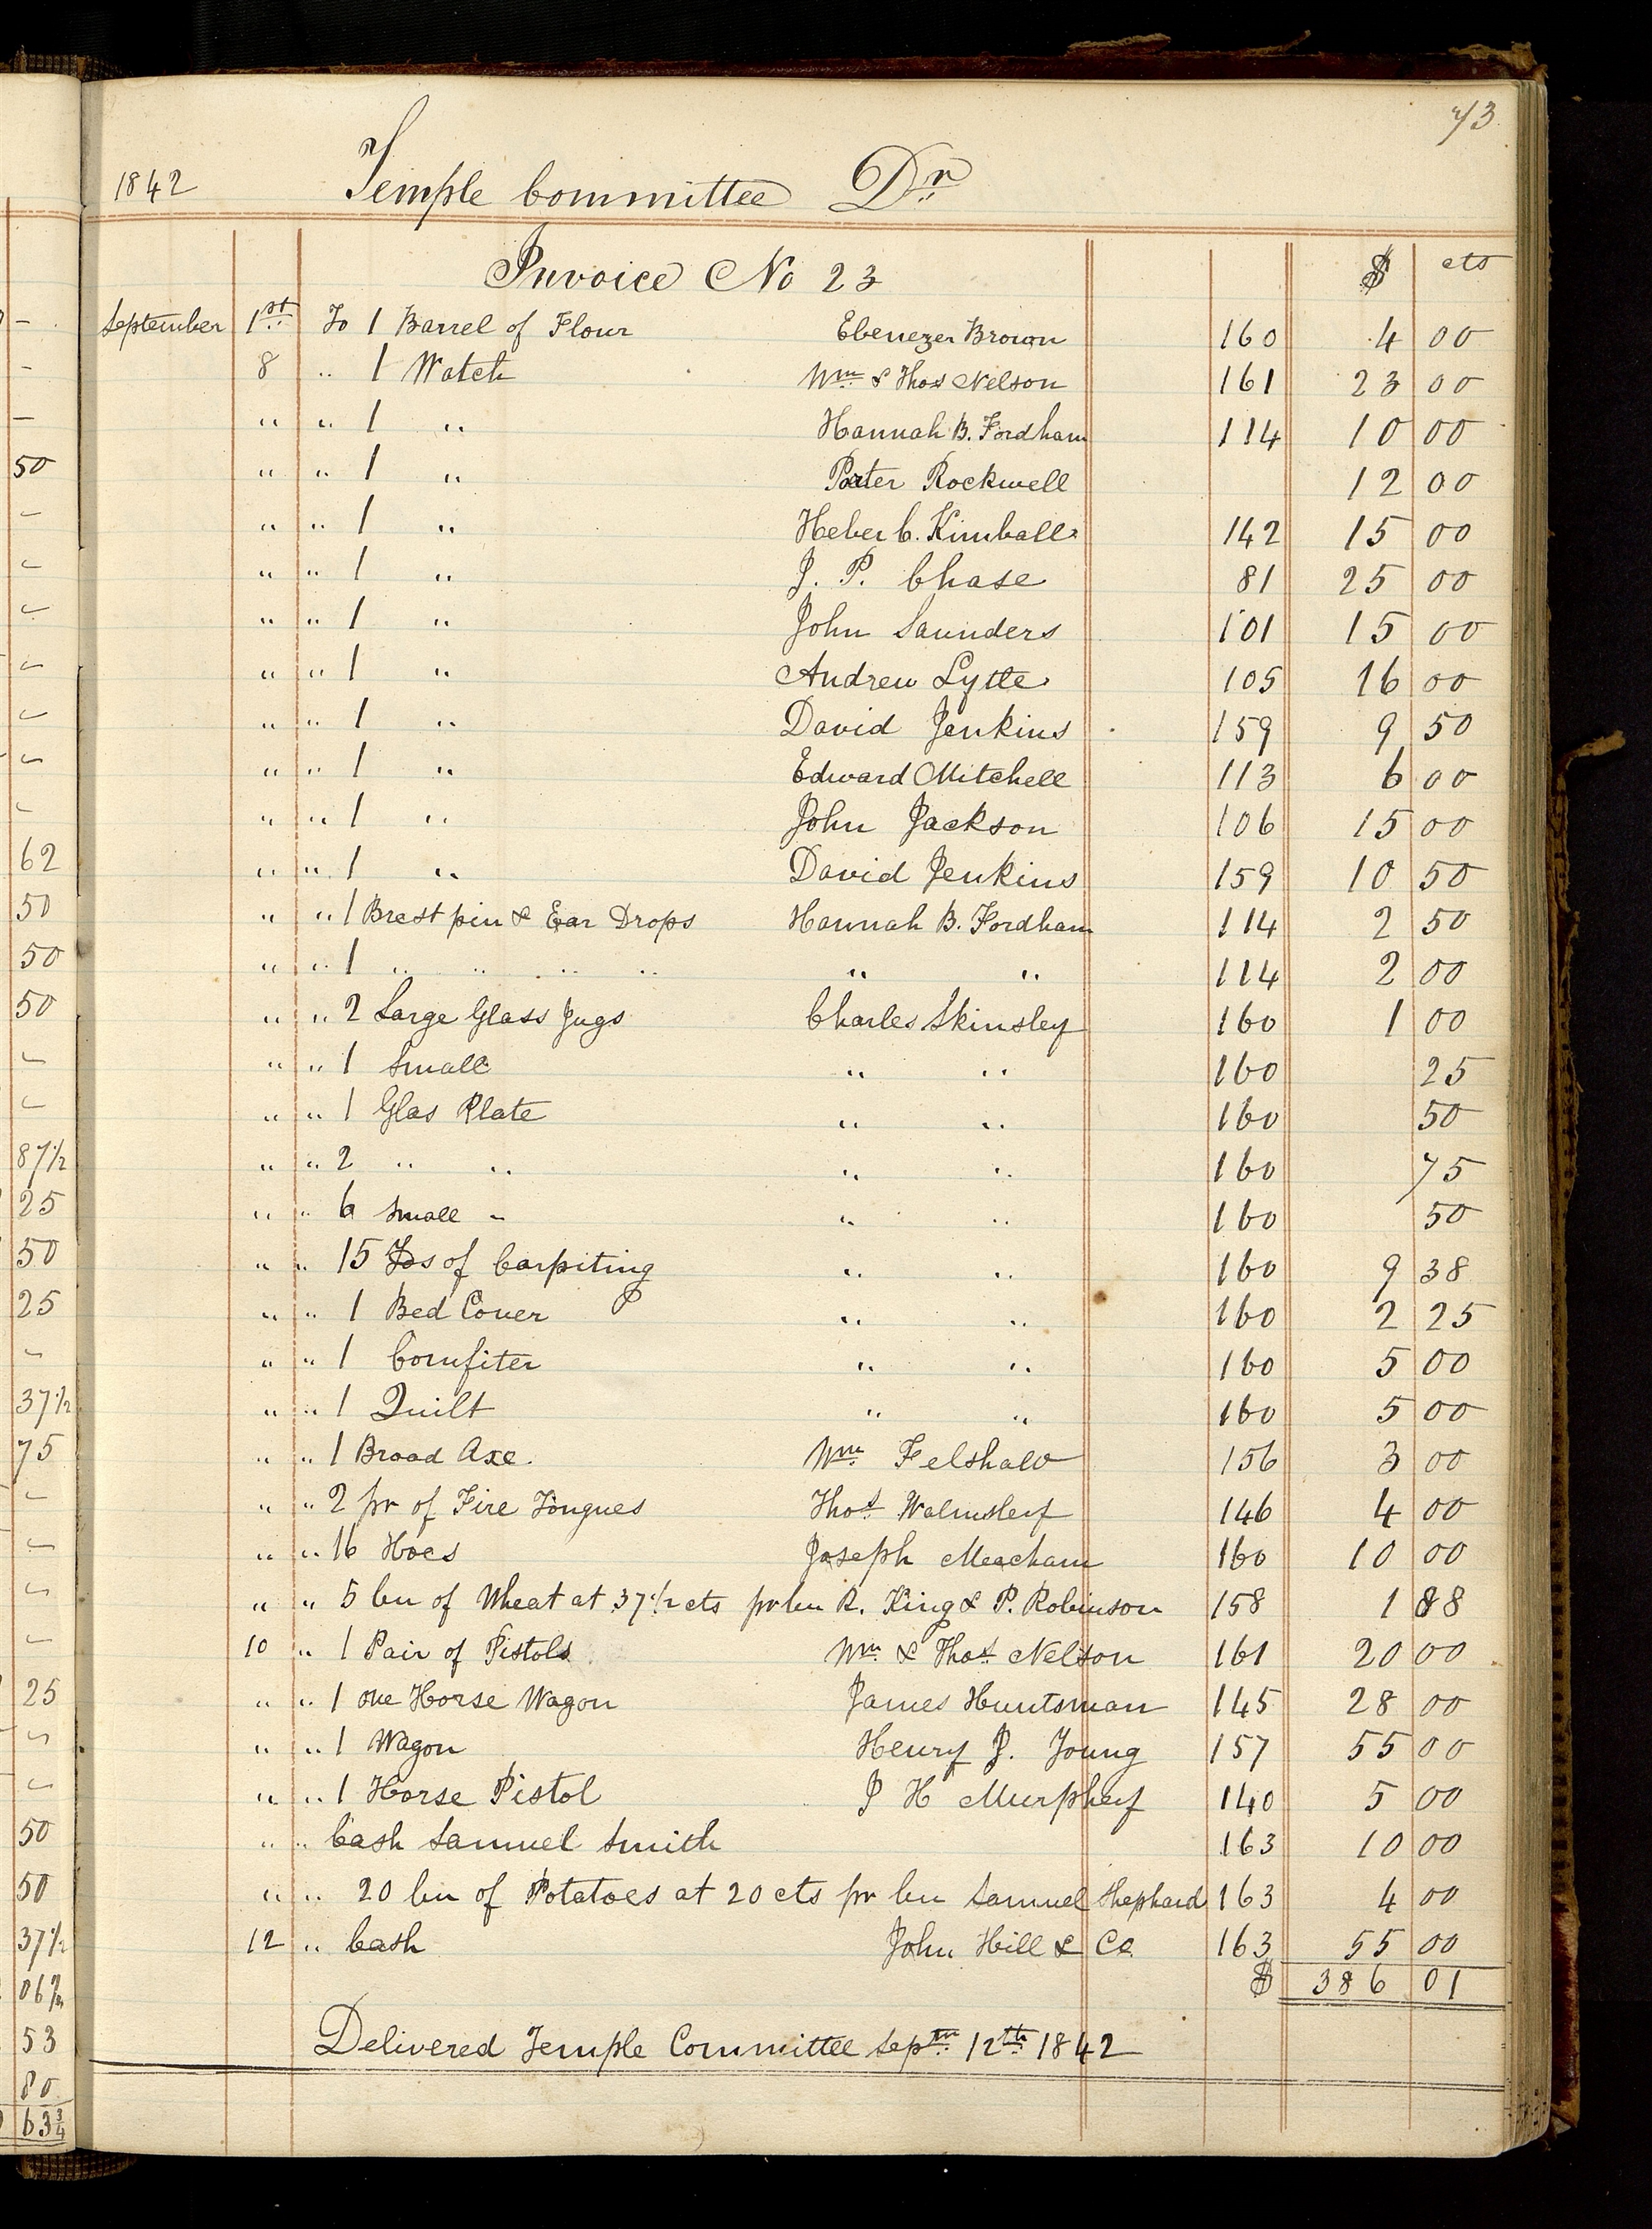 73
1842 Temple Committee Dr
Invoice No 23 $ cts
September 1st To 1 Barrel of Flour Ebenezer Brown 160 4 00
8 " 1 Watch Wm & Thos Nelson 161 23 00
" " 1 " Hannah B. Fordham 114 10 00
" " 1 " Porter Rockwell 12 00
" " 1 " Heber C. Kimball 142 15 00
" " 1 " J. P. Chase 81 25 00
" " 1 " John Saunders 101 15 00
" " 1 " Andrew Lytle 105 16 00
" " 1 " David Jenkins 159 9 50
" " 1 " Edward Mitchell 113 6 00
" " 1 " John Jackson 106 15 00
" " 1 " David Jenkins 159 10 50
" " 1 Brest pin & Ear Drops Hannah B. Fordham 114 2 50
" " 1 " " " " " " 114 2 00
" " 2 Large Glass Jugs Charles Skinsley 160 1 00
" " 1 Small " " 160 25
" " 1 Glas Plate " " 160 50
" " 2 " " " " 160 75
" " 6 Small " " " 160 50
" " 15 Yds of Carpiting " " 160 9 38
" " 1 Bed Cover " " 160 2 25
" " 1 Comfiter " " 160 5 00
" " 1 Quilt " " 160 5 00
" " 1 Broad Axe. Wm Felshaw 156 3 00
" " 2 pr of Fire Tongues Thos Walmsley 146 4 00
" " 16 Hoes Joseph Meacham 160 10 00
" " 5 bu of Wheat at 37 1/2 cts pr bu R. King & P. Robinson 158 1 88
10 " 1 Pair of Pistols Wm & Thos Nelson 161 20 00
" " 1 one Horse Wagon James Huntsman 145 28 00
" " 1 Wagon Henry J. Young 157 55 00
" " 1 Horse Pistol J H Murphey 140 5 00
" " Cash Samuel Smith 163 10 00
" " 20 bu of Potatoes at 20 cts pr bu Samuel Shephard 163 4 00
12 " Cash John Hill & Co. 163 55 00
$ 386 01
Delivered Temple Committee Septm 12th 1842
50
62
50
50
50
87 1/2
25
50
25
37 1/2
75
25
50
50
37 1/2
53
80
63 3/4